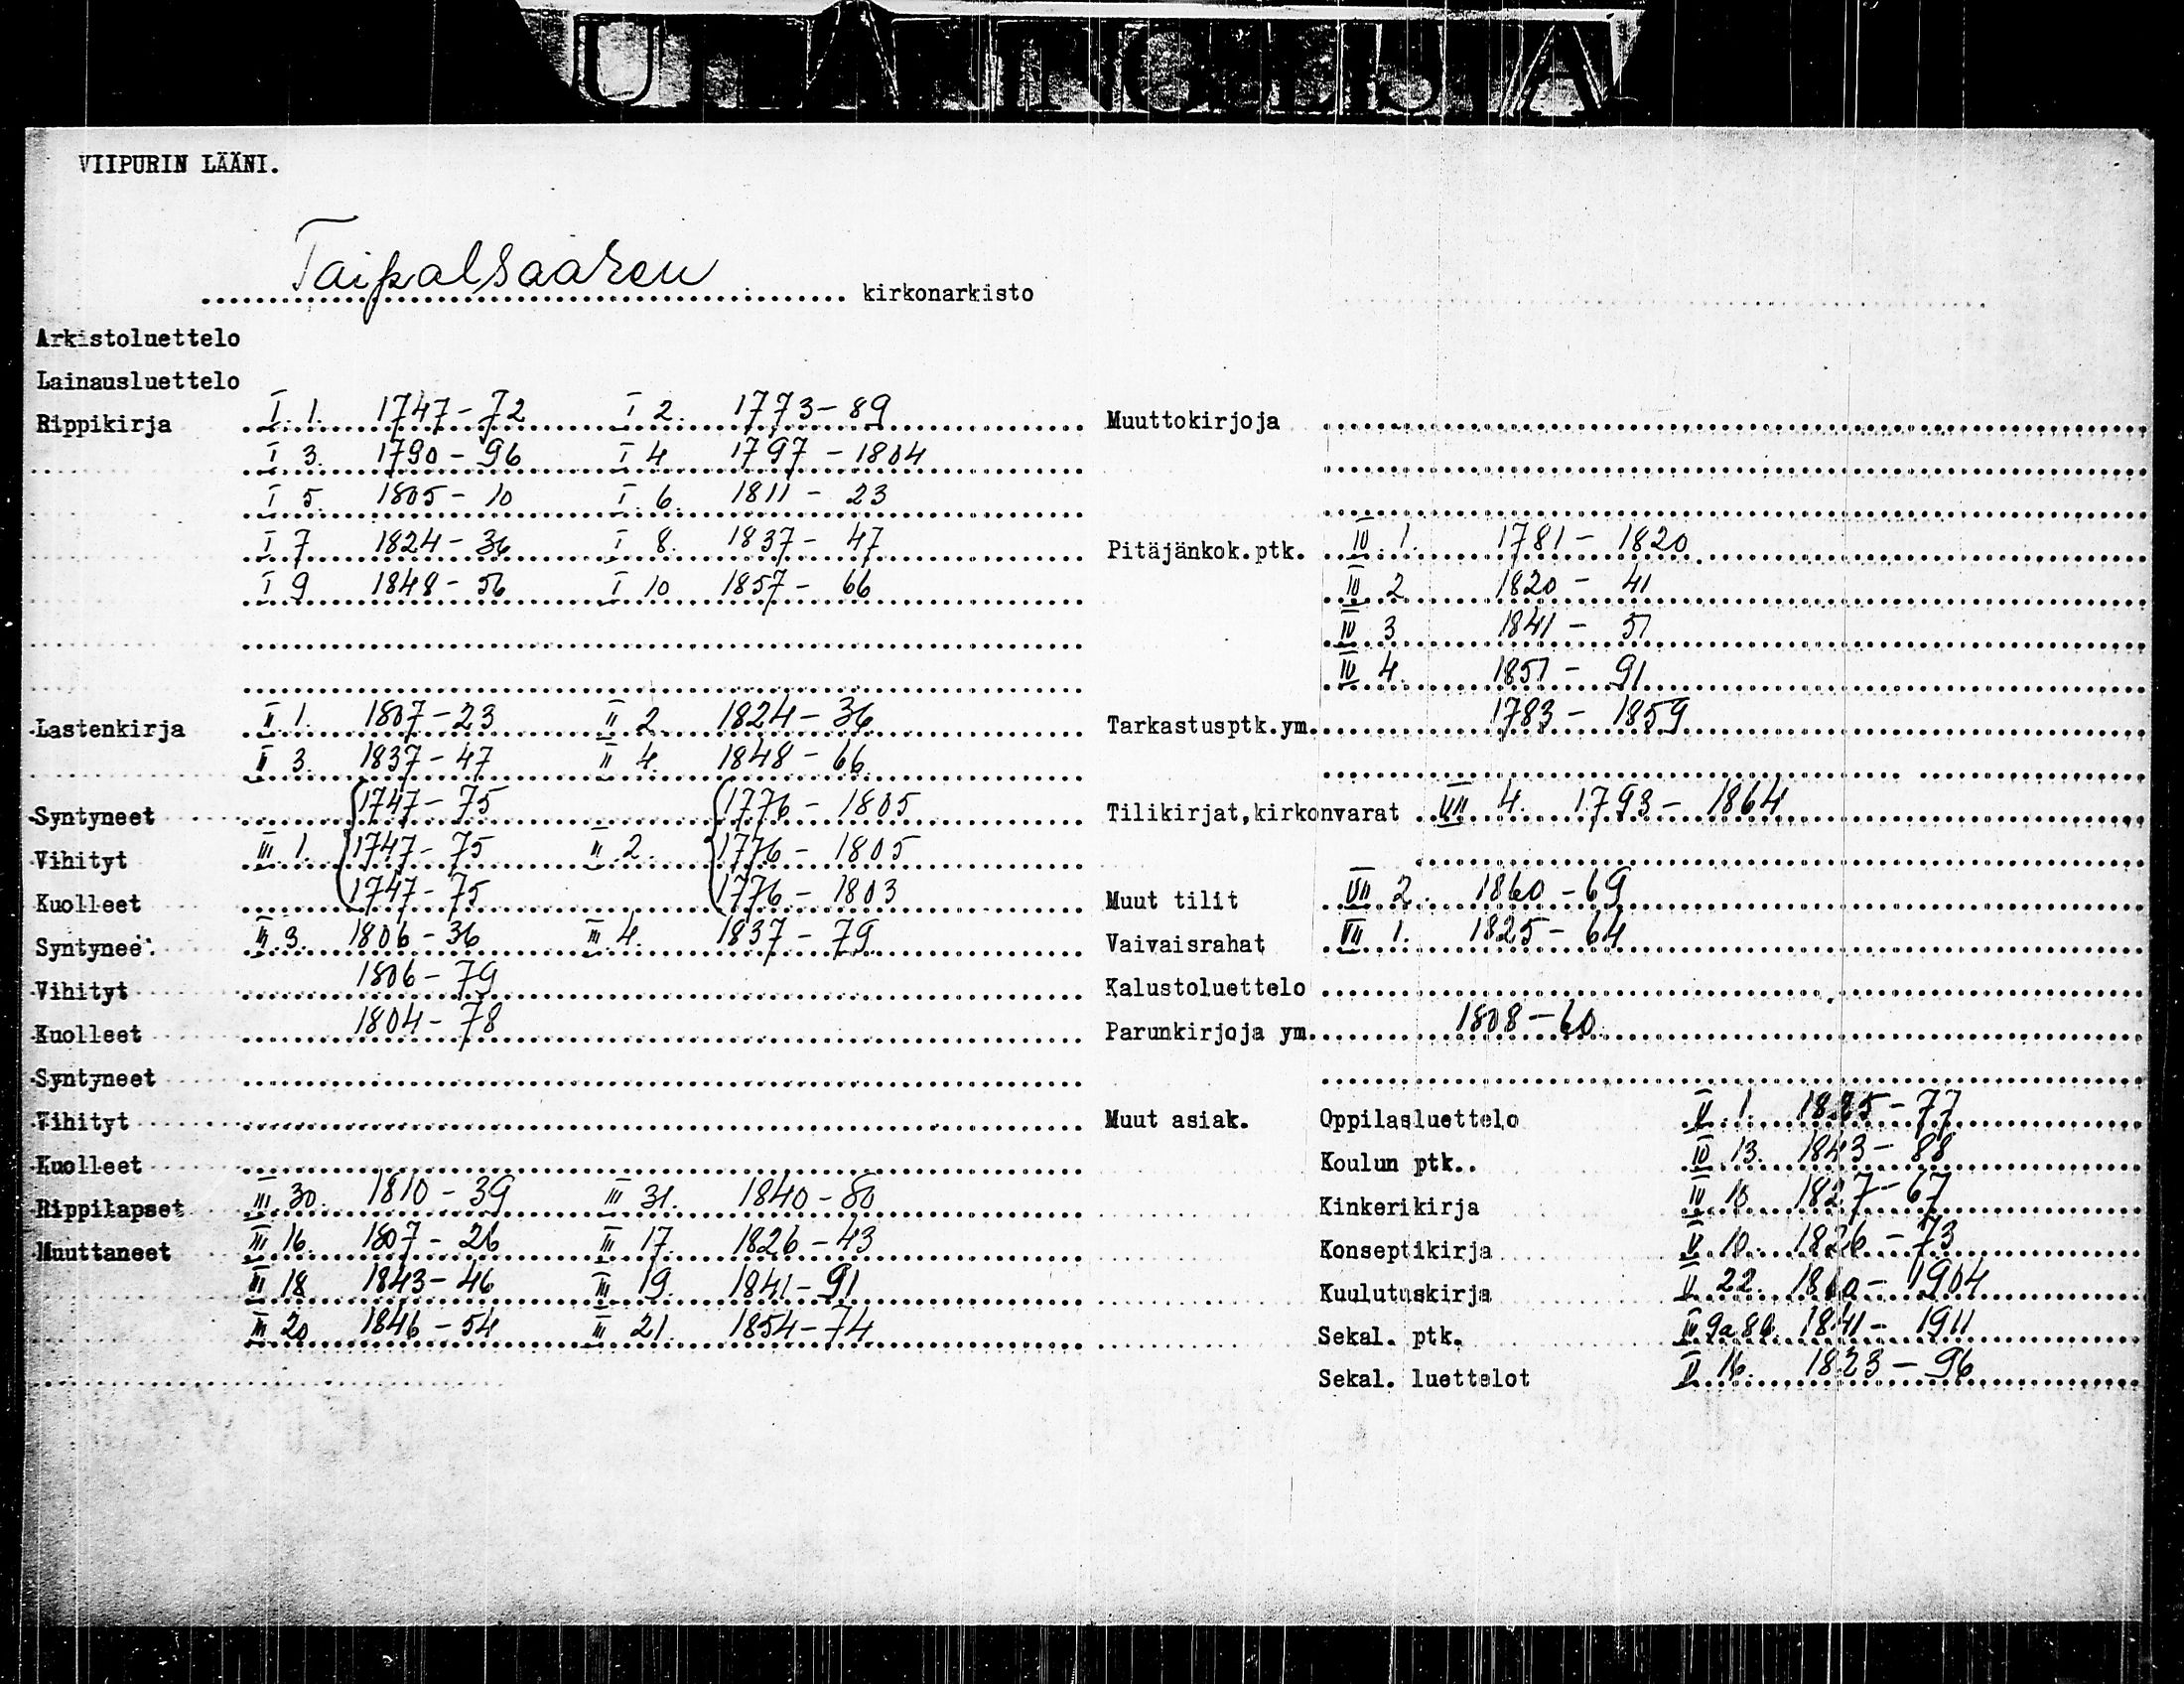 VIIPURIN LÄÄNI.
Taipalsaaren kirkonarkisto
Arkistoluettelo
Lainausluettelo
Rippikirja I. 1. 1747-72 I 2. 1773-89
I 3. 1790-96 I 4 1797-1804
I 5. 1805-10 I 6. 1811-23
I 7 1824-36 I 8. 1837-47
I 9 1848-56 I 10 1857-66
Lastenkirja II 1. 1807-23 II 2 1824-36
II 3. 1837-47 II 4. 1848-66
Syntyneet 1747-75 1776-1805
Vihityt III 1. 1747-75 II 2. 1776-1805
Kuolleet 1747-75 1776-1803
Syntynee III 3. 1806-36 III 4. 1837-79
Vihityt 1806-79
Kuolleet 1804-78
Syntyneet
Vihityt
Kuolleet
Rippilapset III 30. 1810-39 III 31. 1840-80
Muuttaneet III 16. 1807-26 III 17. 1826-43
III 18 1843-46 III 19. 1841-91
III 20 1846-54 III 21. 1854-74
Muuttokirjoja
Pitäjänkok.ptk. IV 1. 1781-1820
IV 2 1820-41
IV 3 1841-51
IV 4. 1851-91
Tarkastusptk.ym. 1783-1859
Tilikirjat,kirkonvarat VII 4. 1793-1864
Muut tilit VII 2. 1860-69
Vaivaisrahat VII 1. 1825-64
Kalustoluettelo
Parunkirjoja ym. 1808-60.
Muut asiak. Oppilasluettelo V 1. -77
Koulun ptk.. IV 13. 1843-88
Kinkerikirja IV 1827-67
Konseptikirja V 10. 1826-73
Kuulutuskirja 22. -1904
Sekal. ptk. IV 1841-1911
Sekal. luettelot 16. 1823-96